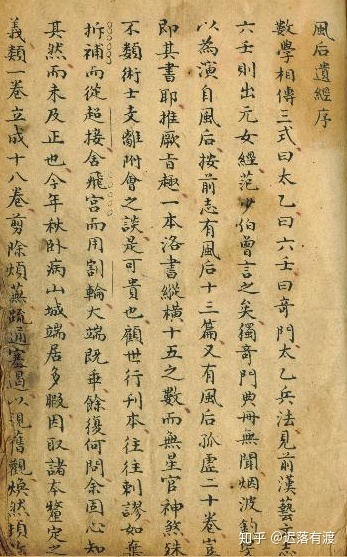 風后遺經序
數學相傳三式曰太乙曰六壬曰奇門太乙兵法見前漢藝
六壬則出元女經范少伯曾言之矣獨奇門典冊無聞烟波釣
以為演自風后按前志有風后十三篇又有風后孤虛二十卷豈
即其書耶推厥旨趣一本洛書縱橫十五之數而無星官神煞殊
不類術士支離附會之談是可貴也顧世行刊本往往剌謬如棄
拆補而從超接舍飛宮而用割輪大端既乖餘復何問余固心知
其然而未及正也今年秋卧病山城端居多暇因取諸本釐定之
義類一卷立成十八卷剪除煩蕪疏通塞遏以視舊觀煥然頓
知乎 @近落有渡